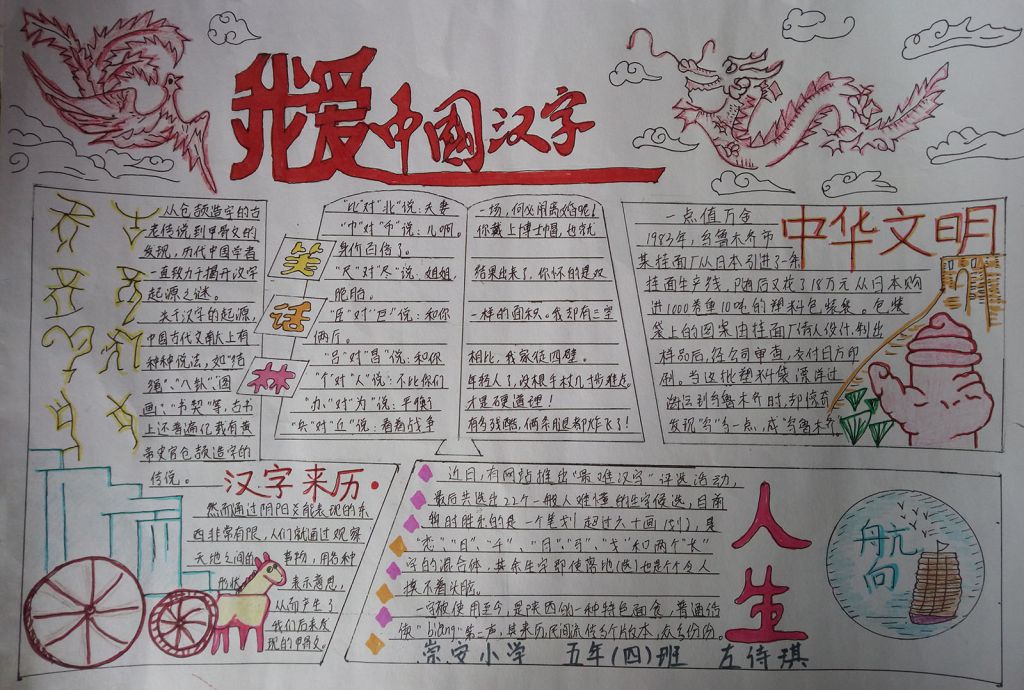 我爱中國汉字
从仓颉造字的古
老传说到甲骨文的
发现，历代中国学者
一直致力于揭开汉字
起源之谜。
关于汉字的起源，
中国古代文献上有
种种说法，如"结
绳"、"八卦"、"图
画"、"书契"等，古书
上还普遍记载有黄
帝史官仓颉造字的
传说。
笑
话
林
"比"对"北"说：夫妻
"巾"对"币"说：儿啊。
身价百倍了。
"尺"对"尽"说：姐姐，
肥胎。
"臣"对"巨"说：和你
俩斤。
"吕"对"昌"说：和你
"个"对"人"说：不比你们
"办"对"为"说：平衡
"兵"对"丘"说：看看战争
一场，何必闹离婚呢！
你戴上博士帽，也就
结果出来了，你怀的是双
一样的面积。我却有三室
相比，我家徒四壁。
年轻人了，没根手杖几寸步难走
才是硬道理！
有多残酷，俩条腿都炸飞了！
中华文明
一点值万金
1983年，乌鲁木齐市
某挂面厂从日本引进了一条
挂面生产线，随后又花了18万元从日本购
进1000卷重10吨的塑料包装袋。包装
袋上的图案由挂面厂请人设计，制出
样品后，经公司审查，交付日方印
刷。当这批塑料袋漂洋过
海运到乌鲁木齐时，却惊奇
发现"乌"多一点，成"鸟鲁木齐。
汉字来历
然而通过阴阳爻能表现的东
西非常有限，人们就通过观察
天地之间的 事物，用各种
形状 表示意思，
从而产生了
我们后来发
现的甲骨文。
近日，有网站推出"最难汉字"评选活动，
最后共选出22个一般人难懂的生字候选，目前
暂时胜出的是一个笔划超过六十画(划)，是
字的混合体。其余生字即使落地(选)也是个个令人
摸不着头脑。
一字被使用至今，是陕西的一种特色面食，普通话
读"biáng"第二声，其来历民间流传多个版本，众多纷纷。
人
生
航
向
崇安小学 五年(四)班 左诗琪